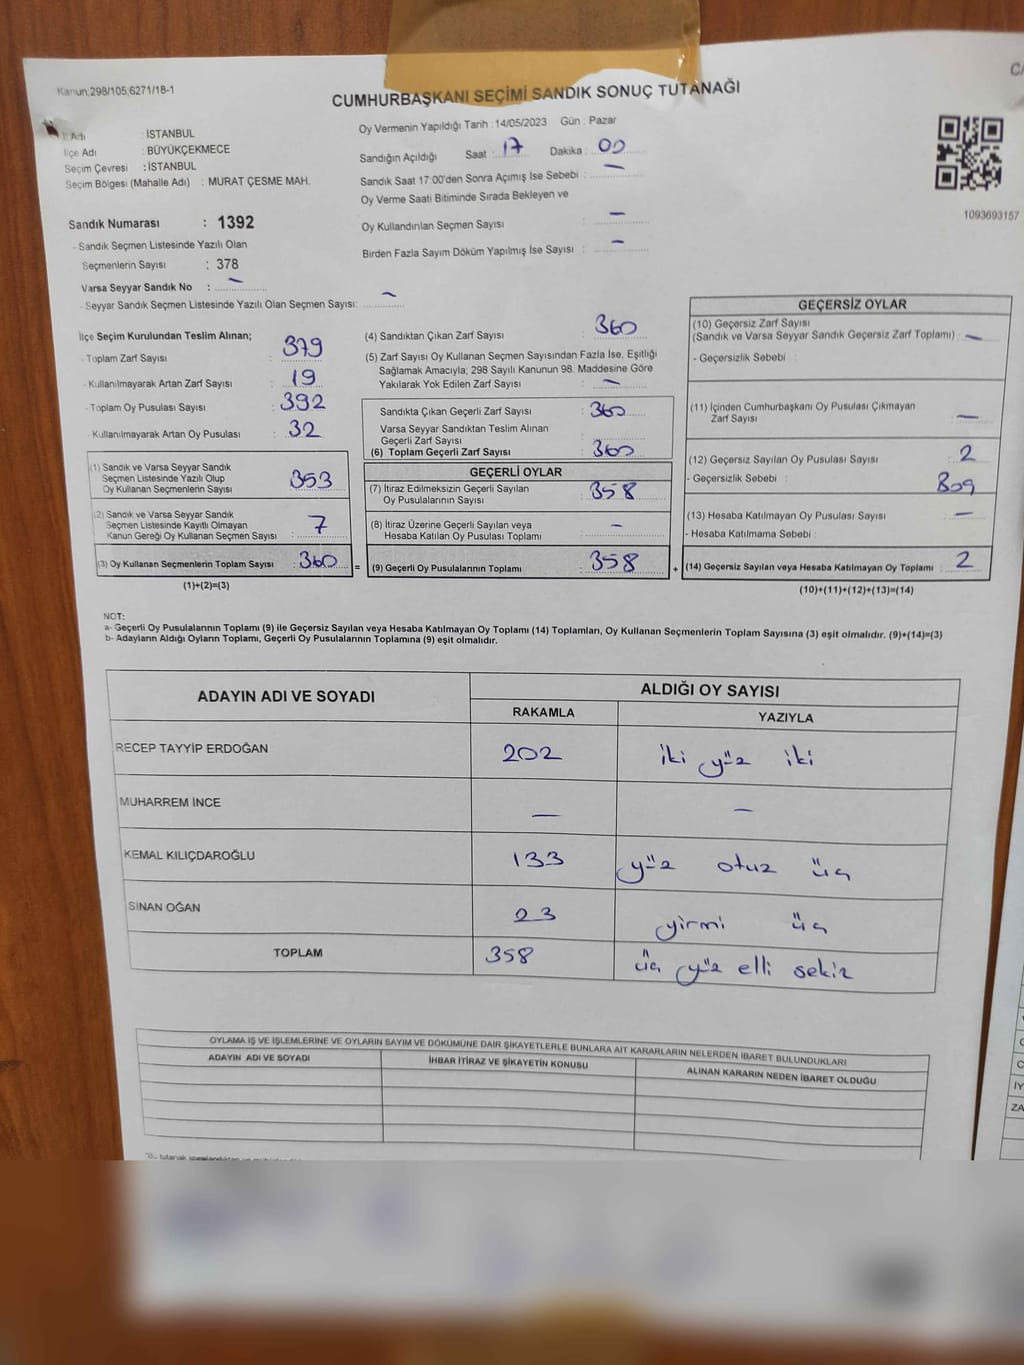 Kanun,298/105,6271/18-1
CUMHURBAŞKANI SEÇİMİ SANDIK SONUÇ TUTANAĞI
İl Adı : İSTANBUL
İlçe Adı : BÜYÜKÇEKMECE
Seçim Çevresi : İSTANBUL
Seçim Bölgesi (Mahalle Adı) : MURAT ÇESME MAH.
Sandık Numarası : 1392
- Sandık Seçmen Listesinde Yazılı Olan
Seçmenlerin Sayısı : 378
Varsa Seyyar Sandık No : –
- Seyyar Sandık Seçmen Listesinde Yazılı Olan Seçmen Sayısı: –
Oy Vermenin Yapıldığı Tarih : 14/05/2023 Gün : Pazar
Sandığın Açıldığı Saat : 17 Dakika : 00
Sandık Saat 17:00'den Sonra Açımış İse Sebebi : –
Oy Verme Saati Bitiminde Sırada Bekleyen ve
Oy Kullandırılan Seçmen Sayısı : –
Birden Fazla Sayım Döküm Yapılmış İse Sayısı : –
1093693157
İlçe Seçim Kurulundan Teslim Alınan;
- Toplam Zarf Sayısı : 379
- Kullanılmayarak Artan Zarf Sayısı : 19
- Toplam Oy Pusulası Sayısı : 392
- Kullanılmayarak Artan Oy Pusulası : 32
(1) Sandık ve Varsa Seyyar Sandık
Seçmen Listesinde Yazılı Olup
Oy Kullanan Seçmenlerin Sayısı : 353
(2) Sandık ve Varsa Seyyar Sandık
Seçmen Listesinde Kayıtlı Olmayan
Kanun Gereği Oy Kullanan Seçmen Sayısı : 7
(3) Oy Kullanan Seçmenlerin Toplam Sayısı : 360 =
(1)+(2)=(3)
(4) Sandıktan Çıkan Zarf Sayısı : 360
(5) Zarf Sayısı Oy Kullanan Seçmen Sayısından Fazla İse, Eşitliği
Sağlamak Amacıyla; 298 Sayılı Kanunun 98. Maddesine Göre
Yakılarak Yok Edilen Zarf Sayısı : –
Sandıkta Çıkan Geçerli Zarf Sayısı : 360
Varsa Seyyar Sandıktan Teslim Alınan
Geçerli Zarf Sayısı :
(6) Toplam Geçerli Zarf Sayısı : 360
GEÇERLİ OYLAR
(7) İtiraz Edilmeksizin Geçerli Sayılan
Oy Pusulalarının Sayısı : 358
(8) İtiraz Üzerine Geçerli Sayılan veya
Hesaba Katılan Oy Pusulası Toplamı : –
(9) Geçerli Oy Pusulalarının Toplamı : 358 +
GEÇERSİZ OYLAR
(10) Geçersiz Zarf Sayısı
(Sandık ve Varsa Seyyar Sandık Geçersiz Zarf Toplamı) : –
- Geçersizlik Sebebi :
(11) İçinden Cumhurbaşkanı Oy Pusulası Çıkmayan
Zarf Sayısı : –
(12) Geçersiz Sayılan Oy Pusulası Sayısı : 2
- Geçersizlik Sebebi :
(13) Hesaba Katılmayan Oy Pusulası Sayısı : –
- Hesaba Katılmama Sebebi :
(14) Geçersiz Sayılan veya Hesaba Katılmayan Oy Toplamı : 2
(10)+(11)+(12)+(13)=(14)
NOT:
a- Geçerli Oy Pusulalarının Toplamı (9) ile Geçersiz Sayılan veya Hesaba Katılmayan Oy Toplamı (14) Toplamları, Oy Kullanan Seçmenlerin Toplam Sayısına (3) eşit olmalıdır. (9)+(14)=(3)
b- Adayların Aldığı Oyların Toplamı, Geçerli Oy Pusulalarının Toplamına (9) eşit olmalıdır.
ADAYIN ADI VE SOYADI ALDIĞI OY SAYISI
RAKAMLA YAZIYLA
RECEP TAYYİP ERDOĞAN 202 iki yüz iki
MUHARREM İNCE – –
KEMAL KILIÇDAROĞLU 133 yüz otuz üç
SİNAN OĞAN 23 yirmi üç
TOPLAM 358 üç yüz elli sekiz
OYLAMA İŞ VE İŞLEMLERİNE VE OYLARIN SAYIM VE DÖKÜMÜNE DAİR ŞİKAYETLERLE BUNLARA AİT KARARLARIN NELERDEN İBARET BULUNDUKLARI
ADAYIN ADI VE SOYADI İHBAR İTİRAZ VE ŞİKAYETİN KONUSU ALINAN KARARIN NEDEN İBARET OLDUĞU